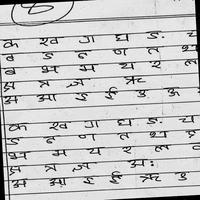 क ख ग घ ङ च
ड ढ ण त थ
ब भ म य र ल
क्ष त्र ज्ञ ऋ
अ आ इ ई उ ऊ
क ख ग घ ङ च
ड ढ ण त थ
भ म य र ल
क्ष त्र ज्ञ अः
अ आ इ ई ऋ उ